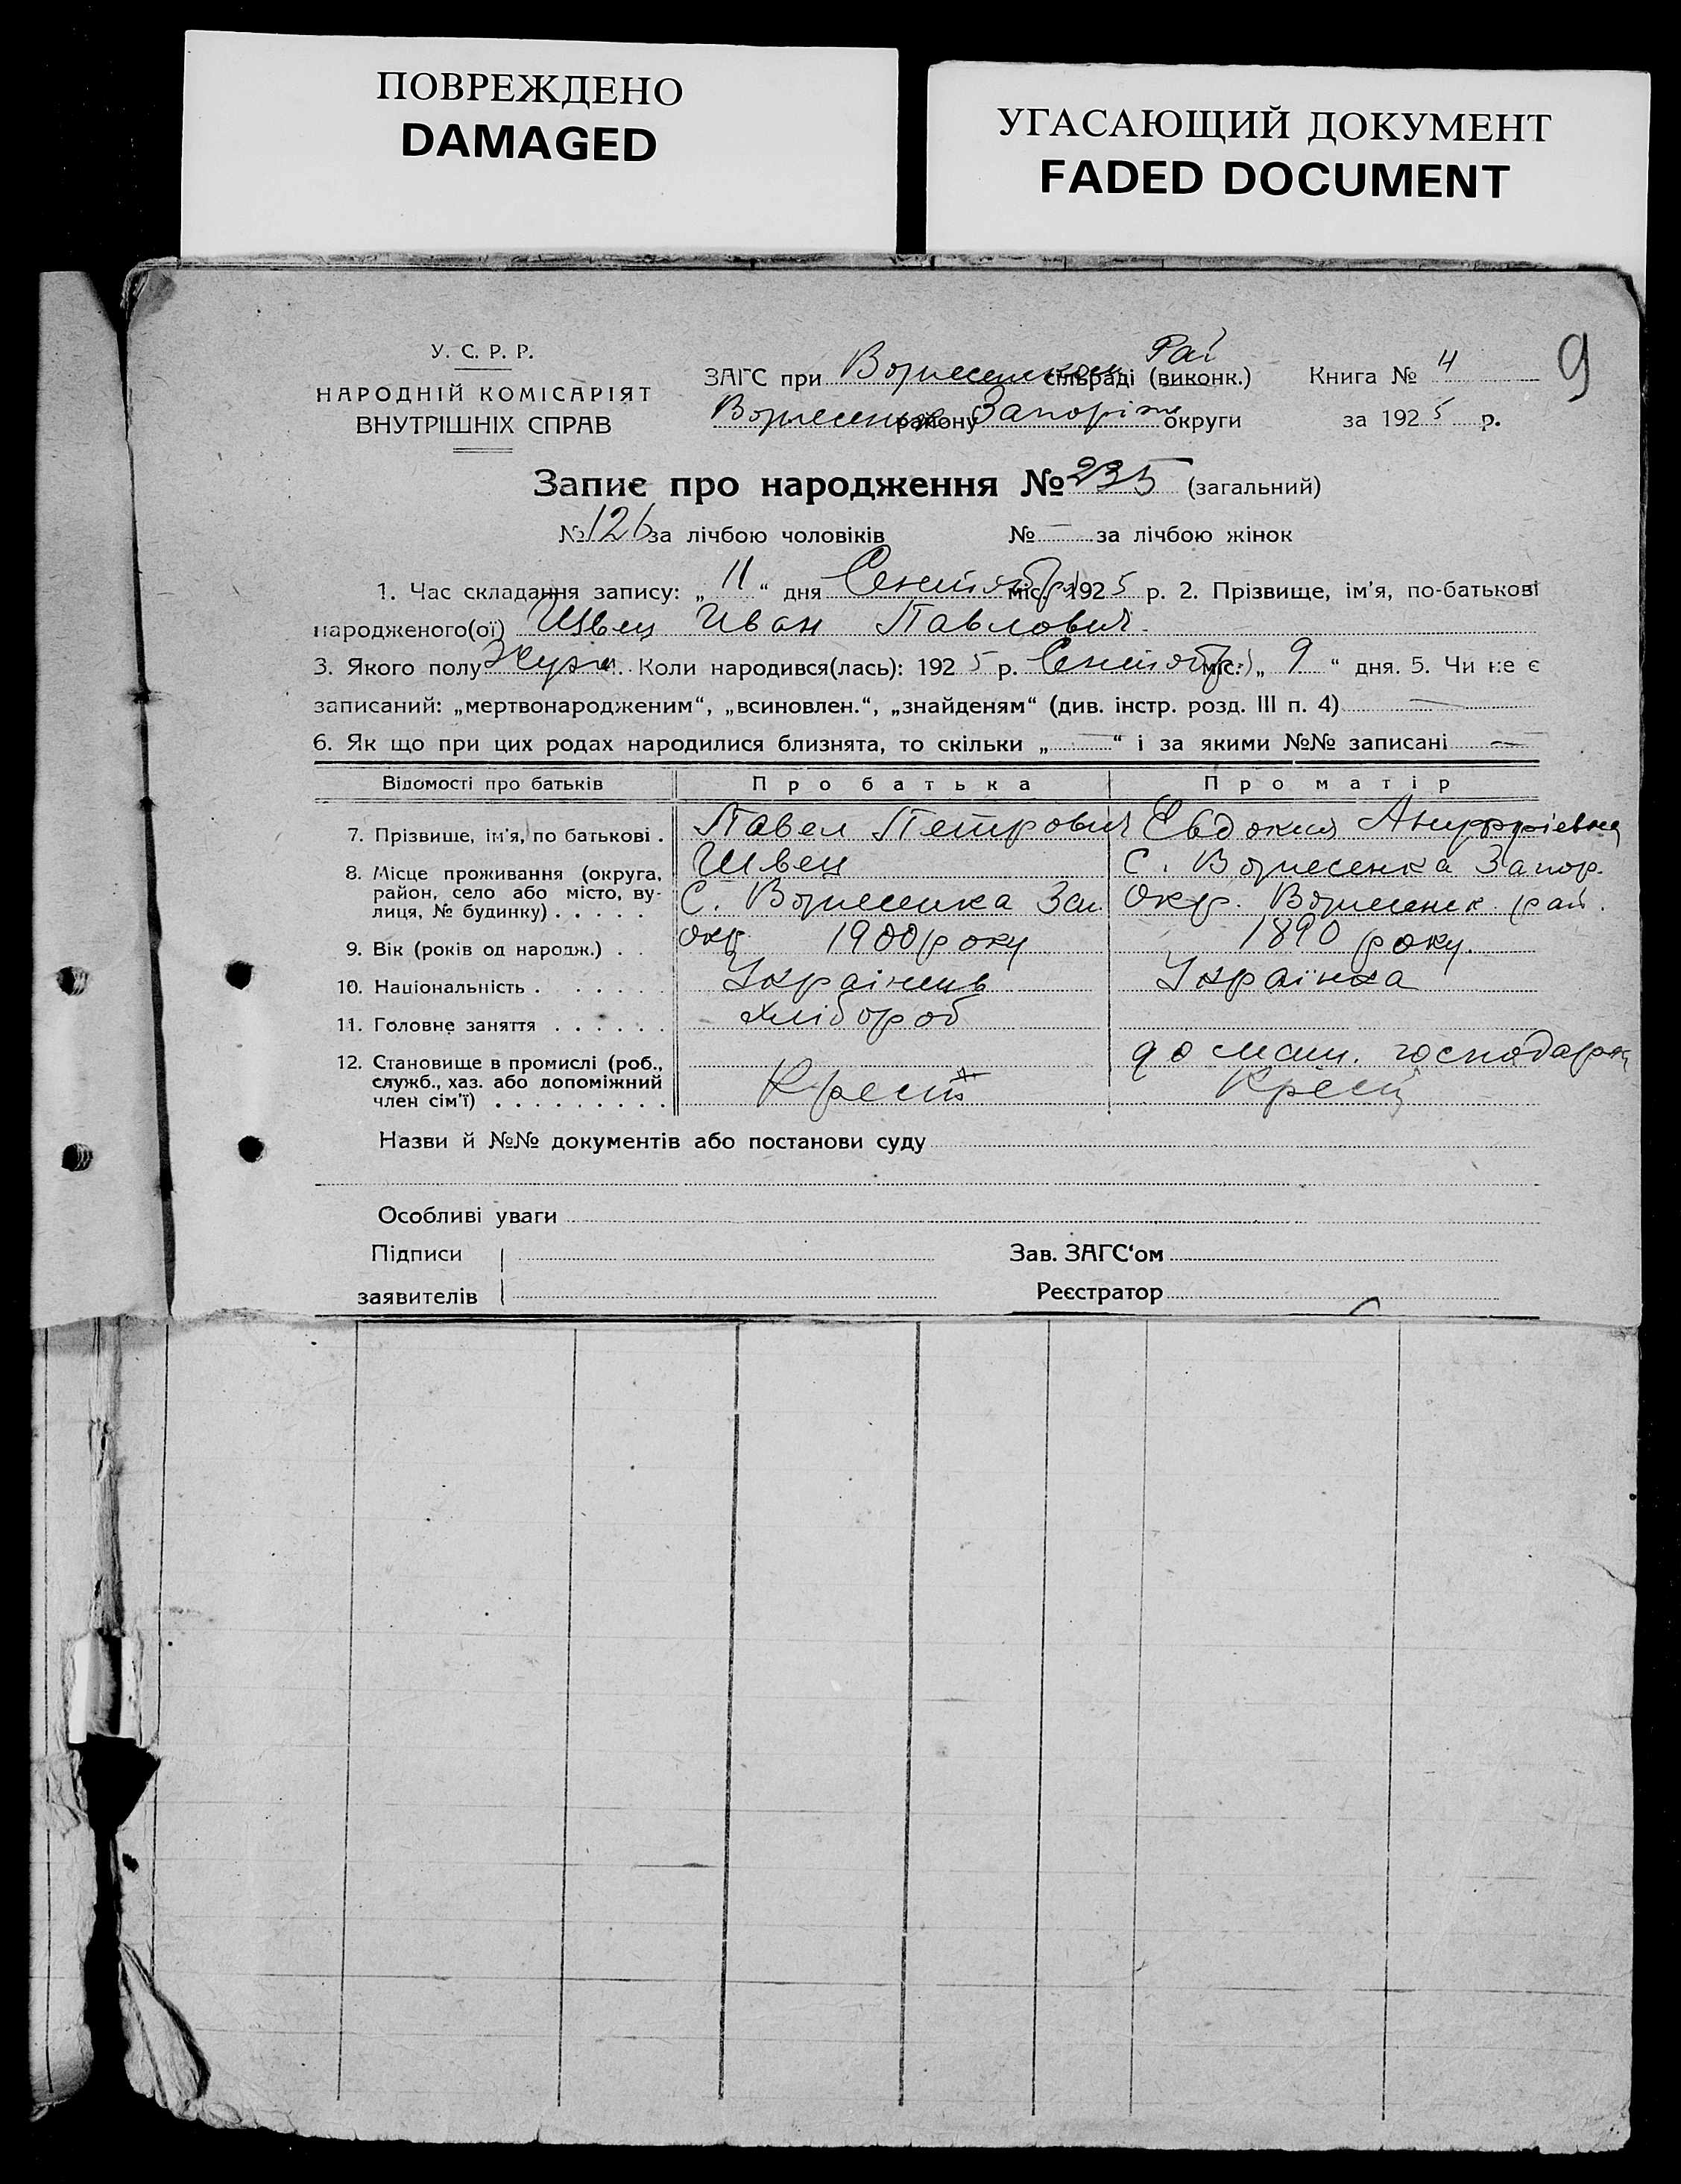 ПОВРЕЖДЕНО
DAMAGED
УГАСАЮЩИЙ ДОКУМЕНТ
FADED DOCUMENT
9
У. С. Р. Р.
НАРОДНІЙ КОМІСАРІЯТ
ВНУТРІШНІХ СПРАВ
Рай
ЗАГС при Вознесенском сільраді (виконк.)
району Запоріж округи
Книга № 4
за 1925 р.
Запис про народження № 235 (загальний)
№ 126 за лічбою чоловіків № — за лічбою жінок
1. Час складання запису: „ 11 “ дня Сентября міс. 1925 р. 2. Прізвище, ім'я, по-батькові
народженого(ої) Швец Иван Павлович.
3. Якого полу Муж. Коли народився(лась): 1925 р. Сентября міс. „ 9 “ дня. 5. Чи не є
записаний: „мертвонародженим“, „всиновлен.“, „знайденям“ (див. інстр. розд. III п. 4) —
6. Як що при цих родах народилися близнята, то скільки „ — “ і за якими №№ записані —
Відомості про батьків Про батька Про матір
7. Прізвище, ім'я, по батькові . Павел Петрович Евдокия Ануффріевна
8. Місце проживання (округа, Швец С. Вознесенка Запор.
район, село або місто, ву- С. Вознесенка Зап. Окр. Вознесенск. рай.
лиця, № будинку) . . . . .
9. Вік (років од народж.) . . окр. 1900 року 1890 року.
10. Національність . . . . . Українець Українка
11. Головне заняття . . . . . . Хлібороб
12. Становище в промислі (роб., домаш. господарка
служб., хаз. або допоміжний Крест
член сім'ї) . . . . . . . . .
Назви й №№ документів або постанови суду
Особливі уваги
Підписи
заявителів
Зав. ЗАГС'ом
Реєстратор